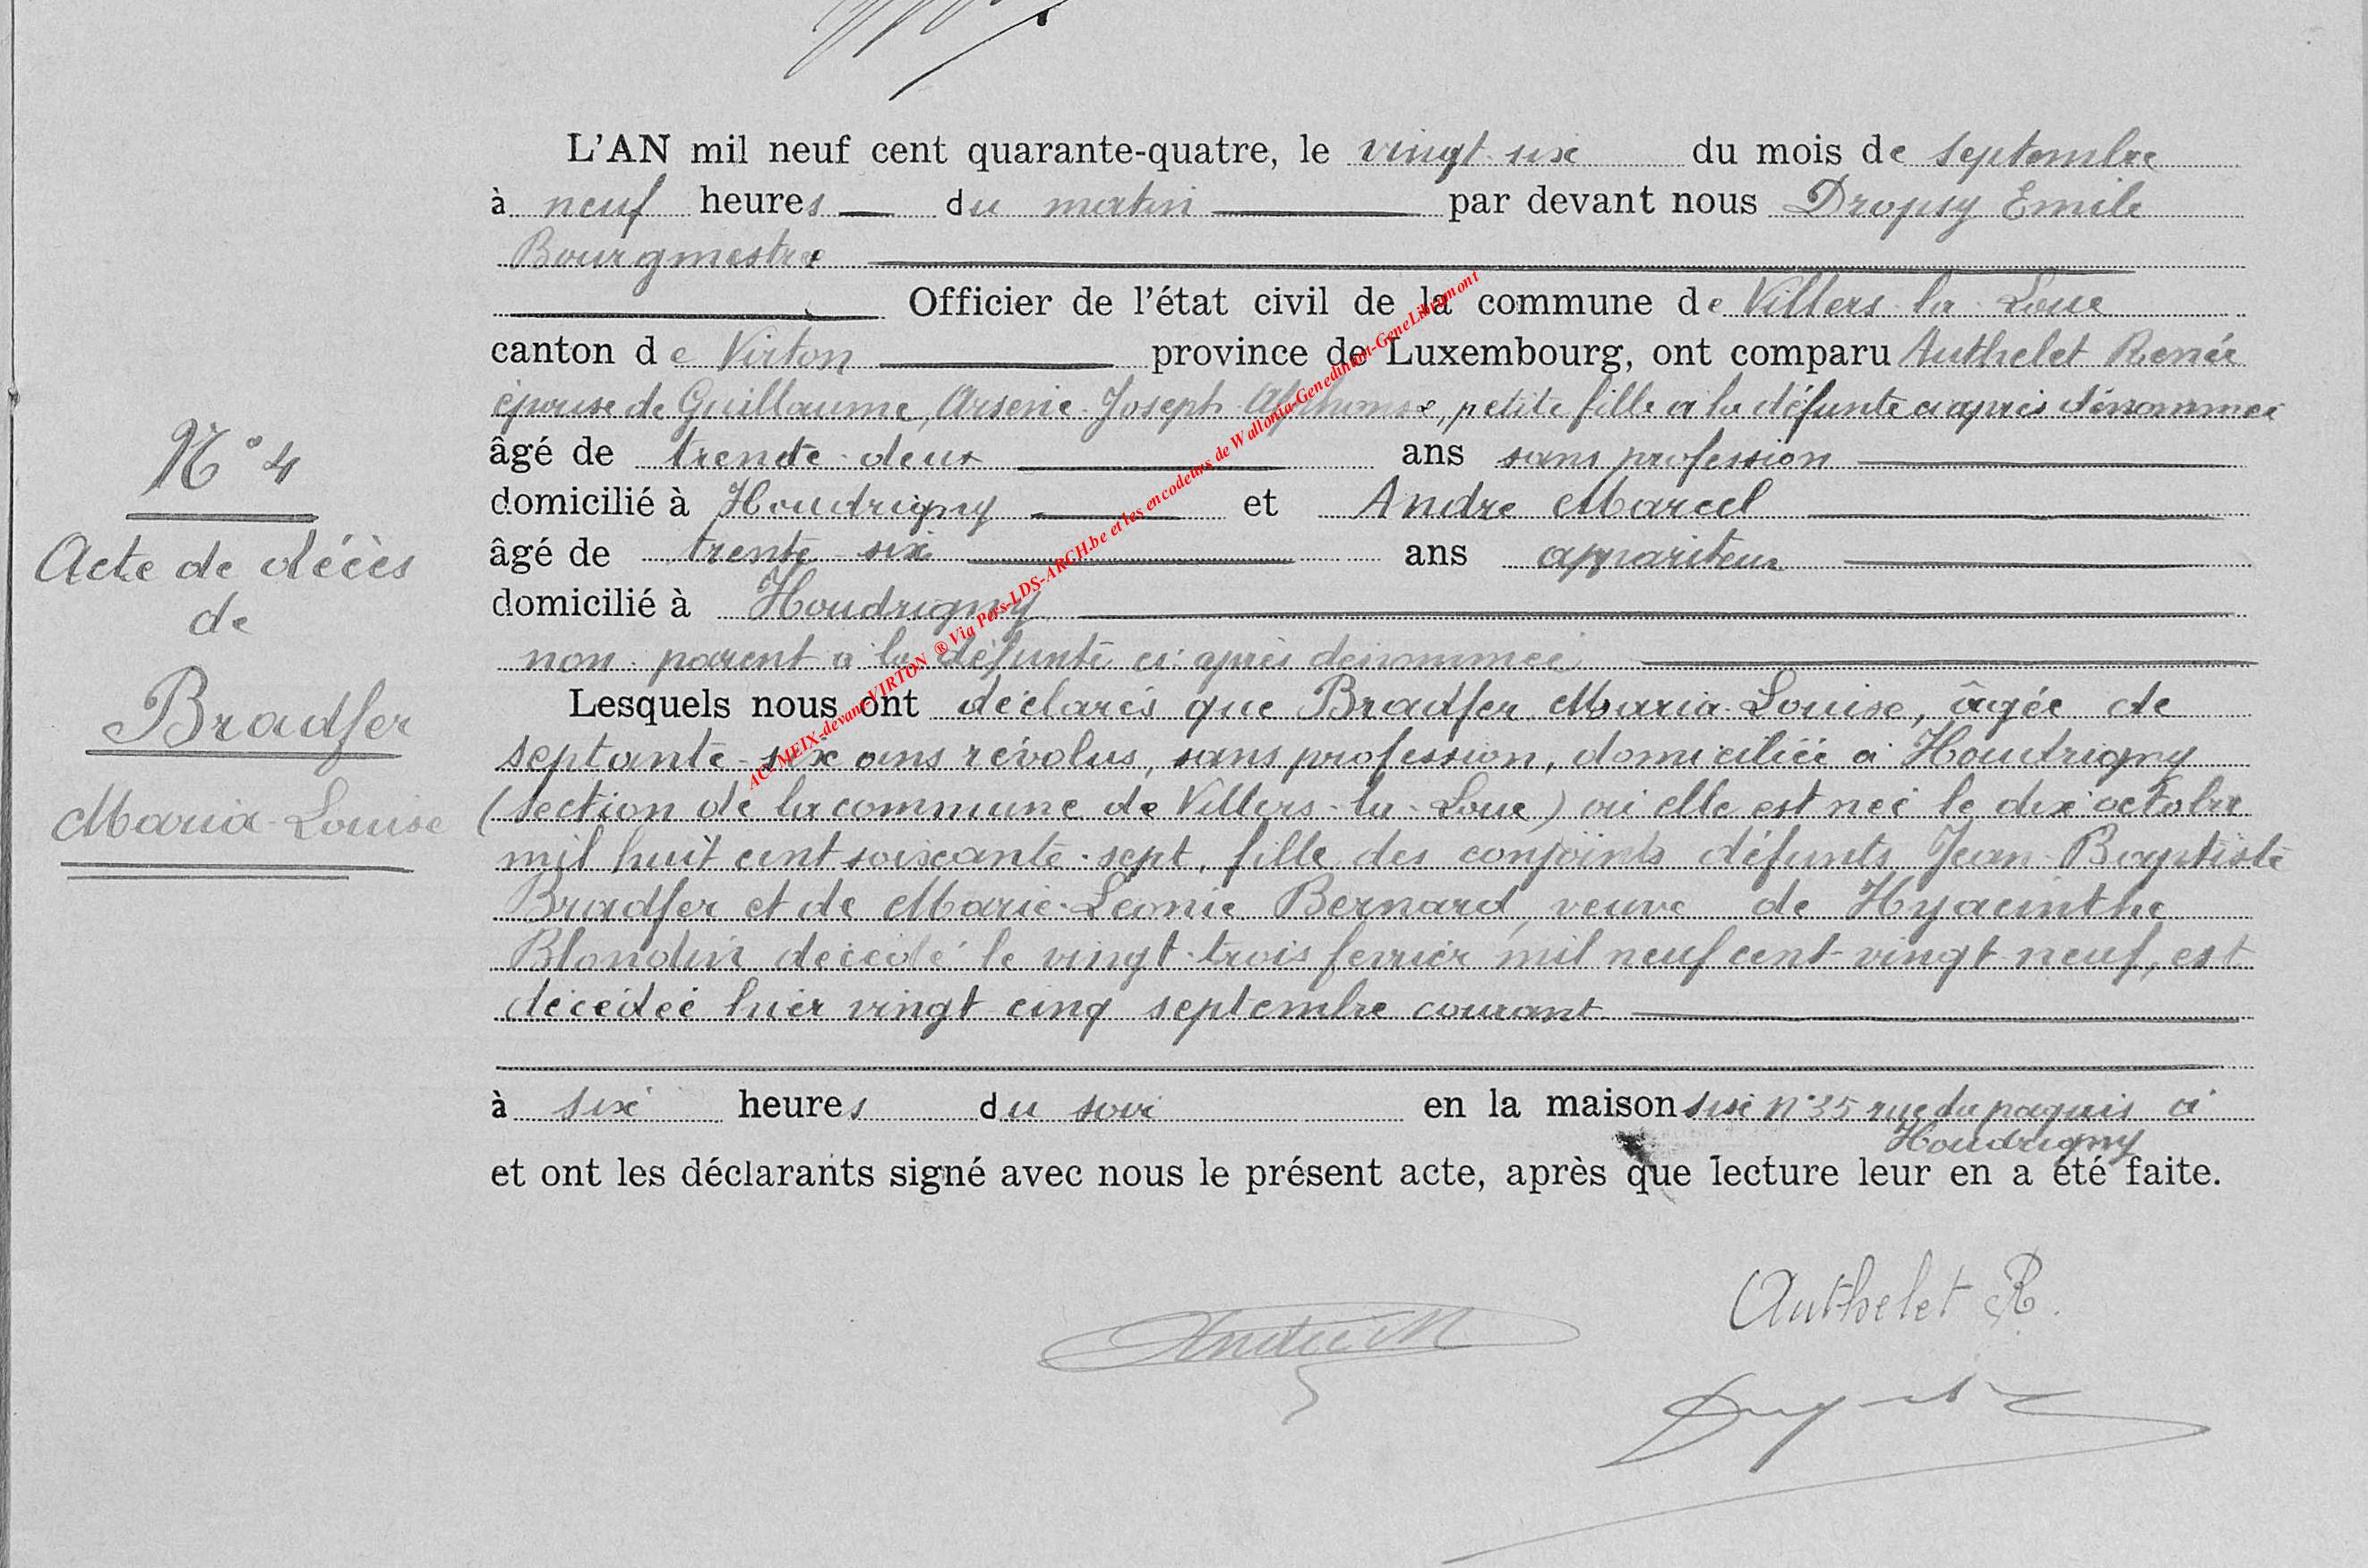 L'AN mil neuf cent quarante-quatre, le vingt six du mois de septembre
à neuf heures du matin par devant nous Dropsy Emile
Bourgmestre
Officier de l'état civil de la commune de Villers-la-Loue
canton de Virton province de Luxembourg, ont comparu Authelet Renée
épouse de Guillaume, Arsène-Joseph-Alphonse, petite fille à la défunte ci après dénommée
âgé de trente-deux ans sans profession
domicilié à Houdrigny et Andre Marcel
âgé de trente-six ans appariteur
domicilié à Houdrigny
non parent à la défunte ci-après dénommée
Lesquels nous ont déclarés que Bradfer Maria-Louise, âgée de
septante-six ans révolus, sans profession, domiciliée à Houdrigny
(section de la commune de Villers-la-Loue) où elle est née le dix octobre
mil huit cent soixante-sept, fille des conjoints défunts Jean-Baptiste
Bradfer et de Marie-Léonie Bernard, veuve de Hyacinthe
Blondin décédé le vingt-trois février mil neuf cent-vingt neuf, est
décédée hier vingt-cinq septembre courant
à six heures du soir en la maison sise n°35 rue du paquis à
Houdrigny
et ont les déclarants signé avec nous le présent acte, après que lecture leur en a été faite.
N° 4
Acte de décès
de
Bradfer
Maria-Louise
Authelet R.
André M
AC. MEIX-devant-VIRTON ® Via Pers-LDS-ARCH.be et les encodeurs de Wallonia-Genedinant-GeneLibramont